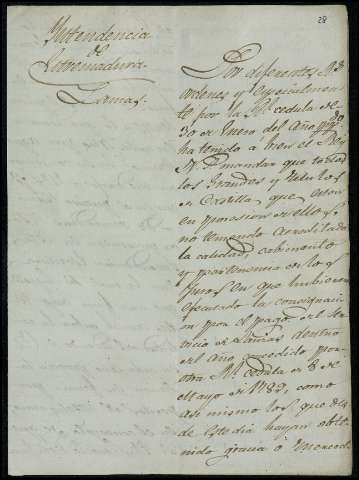 28
Yntendencia
de
Estremadura.
Lanzas.
Por diferentes Rs
ordenes y especialmen-
te por la Rl. cedula de
30 de Enero del Año
ha tenido à bien el Rey
N. S. mandar que todos
los Grandes y Titulos
de Castilla, que esten
en posesion de ellos,
no teniendo acreditada
la calidad, cabimento
y pertenencia en los
Juros en que hubieren
executado la consignaci-
on por el pago del Ser-
vicio de Lanzas dentro
del Año concedido por
otra Rl. cedula de 3 de
Mayo de 1789, como
asi mismo los que des-
de este dia hayan obte-
nido gracia ò merced